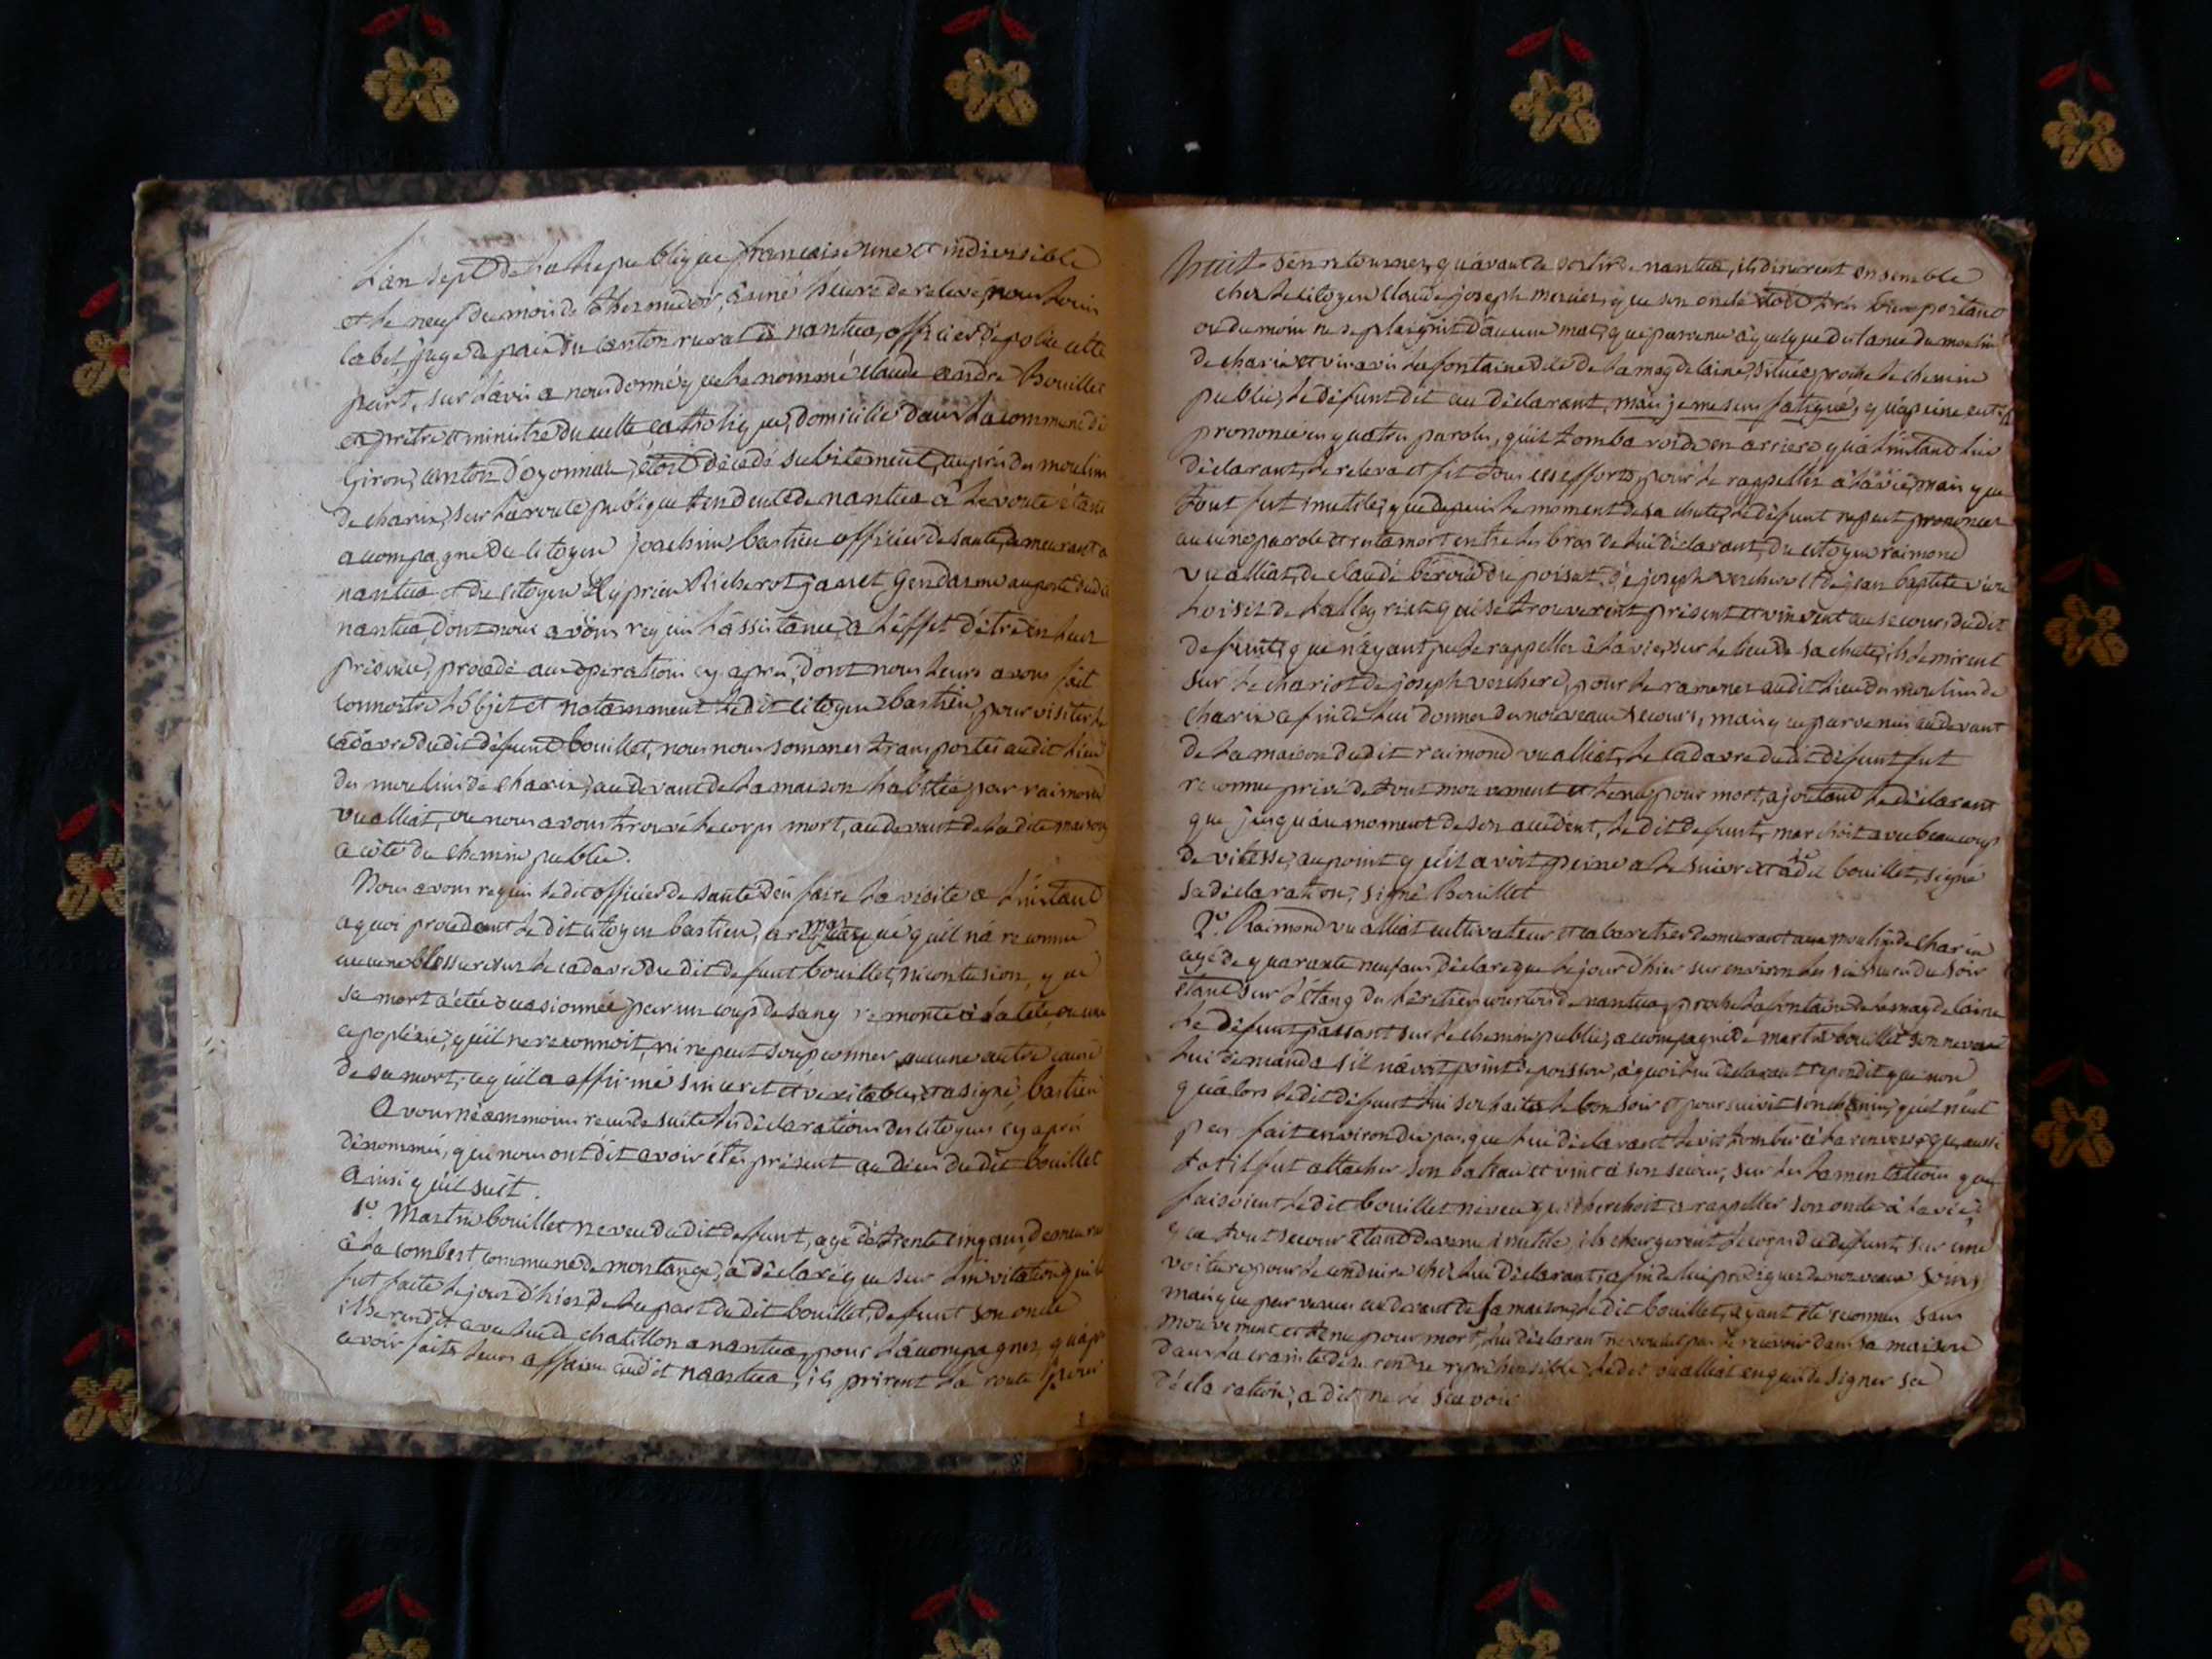 L'an sept de la Republique francaise une et indivisible
et le neuf du mois de thermidor, a une heure de relevé, nous Louis
Cabet, juge de paix du canton rural de nantua, officier de police cette
part, sur l'avis a nous donné que le nommé Claude andré Bouillet
ex prêtre et ministre du culte catholique, domicilié dans la commune de
Giron, canton d'oyonnax, étoit décédé subitement, auprès des moulins
de charix, sur la route publique tendente de nantua à la voute étant
acompagné du citoyen joachim bastien officier de santé, demeurant a
nantua et du citoyen Cyprien Richerot janet Gendarme au poste dudit
nantua, dont nous avons requis l'assistance, a l'effet d'être en leur
présence, procédé aux opérations cy après, dont nous leurs avons fait
connoitre l'objet et notamment ledit citoyen bastien, pour visiter le
cadavre dudit défunt bouillet, nous nous sommes transportés audit lieu
des moulins de charix, au devant de la maison habitée par raimond
vualliat, ou nous avons trouvé le corps mort, au devant de ladite maison
a coté du chemin public.
Nous avons requis ledit officier de santé d'en faire la visite a l'instant
a quoi procédant ledit citoyen bastien, a remarqué qu'il n'a reconnu
aucune blessure sur le cadavre dudit defunt bouillet, ni contusion, que
sa mort a été occasionnée par un coup de sang remonté à la tête, ou une
apoplexie, qu'il ne reconnoit, ni ne peut soupconner aucune autre cause
de sa mort, ce qu'il a affirmé sincer et et véritable, et a signé, bastien
Avons néammoins recu de suite les déclarations des citoyens cy après
dénommés, qui nous ont dit avoir étés présent au décès dudit bouillet
Ainsi qu'il suit.
1°. Martin bouillet neveu dudit defunt, agé de trente cinq ans, demeurant
à la combest commune de montange, a déclaré que sur l'invitation qui lui
fut faite le jour d'hier de la part dudit bouillet, defunt son oncle
il se rendit avec lui de chatillon a nantua, pour l'acompagner, qu'après
avoir faits leurs affaires audit nantua, ils prirent la route pour
s'en retourner, qu'avant de sortir de nantua, ils dinerent ensemble
chez le citoyen claude joseph mercier, que son oncle étoit très bien portant
ou du moins ne se plaignit d'aucun mal, que parvenu à quelque distance du moulin
de charix et vis avis la fontaine dite de la magdelaine, située proche le chemin
public, le défunt dit au déclarant, mais je me sens fatigué, qu'a peine eut il
prononcé ces quatre paroles, qu'il tomba roide en arriere qu'a l'instant lui
déclarant, le releva et fit tous ses efforts, pour le rappeller à la vie, mais que
tout fut inutile, que depuis le moment de sa chute, le défunt ne put prononcer
aucune parole et resta mort entre les bras de lui déclarant, du citoyen raimond
vualliat, de claude béroud du poisat, de joseph verchere et de jean baptiste
de lalleyriat qui se trouverent présent et vinrent au secours dudit
defunt, que n'ayant pu le rappeller à la vie, sur le lieu de sa chute, ils le mirent
sur le chariot de joseph verchere, pour le ramener audit lieu des moulins de
charix afin de lui donner des nouveaux secours, mais que parvenus au devant
de la maison dudit raimond vualliat, le cadavre dudit défunt fut
reconnu privé de tout mouvement et tenu pour mort, ajoutant le déclarant
que jusqu'au moment de son accident, ledit defunt, marchoit avec beaucoup
de vitesse, au point qu'il avoit peine a le suivre et a le dit bouillet, signé
sa déclaration, signé bouillet
2°. Raimond vualliat cultivateur et cabaretier demeurant aux moulins de charix
agé de quarante neuf ans déclare que le jour d'hier sur environ les six heures du soir
étant sur l'étang de nantua, proche la fontaine de la magdelaine
le défunt passant sur le chemin public, acompagné de martin bouillet son neveu
lui demanda s'il n'avoit point de poisson, a quoi lui déclarant repondit que non
qu'alors ledit défunt lui souhaita le bon soir et poursuivit son chemin, qu'il n'eut
pas fait environ dix pas, que lui déclarant le vit tomber à la renverse, qu'aussi
tot il fut attacher son bateau et vint a son secours, sur les lamentations que
faisoient ledit bouillet neveu qui cherchoit a rappeller son oncle à la vie,
que tout secour étant devenu inutile, ils chargerent le corps du defunt, sur une
voiture pour le conduire chez lui déclarant, afin de lui prodiguer de nouveaux soins
mais que parvenus au devant de sa maison, ledit bouillet, ayant été reconnu sans
mouvement et tenu pour mort, lui déclarant ne voulut pas le recevoir dans sa maison
dans la crainte de se rendre repréhensible ledit vualliat enquis de signer sa
déclaration, a dit ne le scavoir